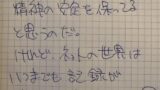 精神の安全を保ってる
と思うのだ。
けれど、ネットの世界は
いつまでも記録が